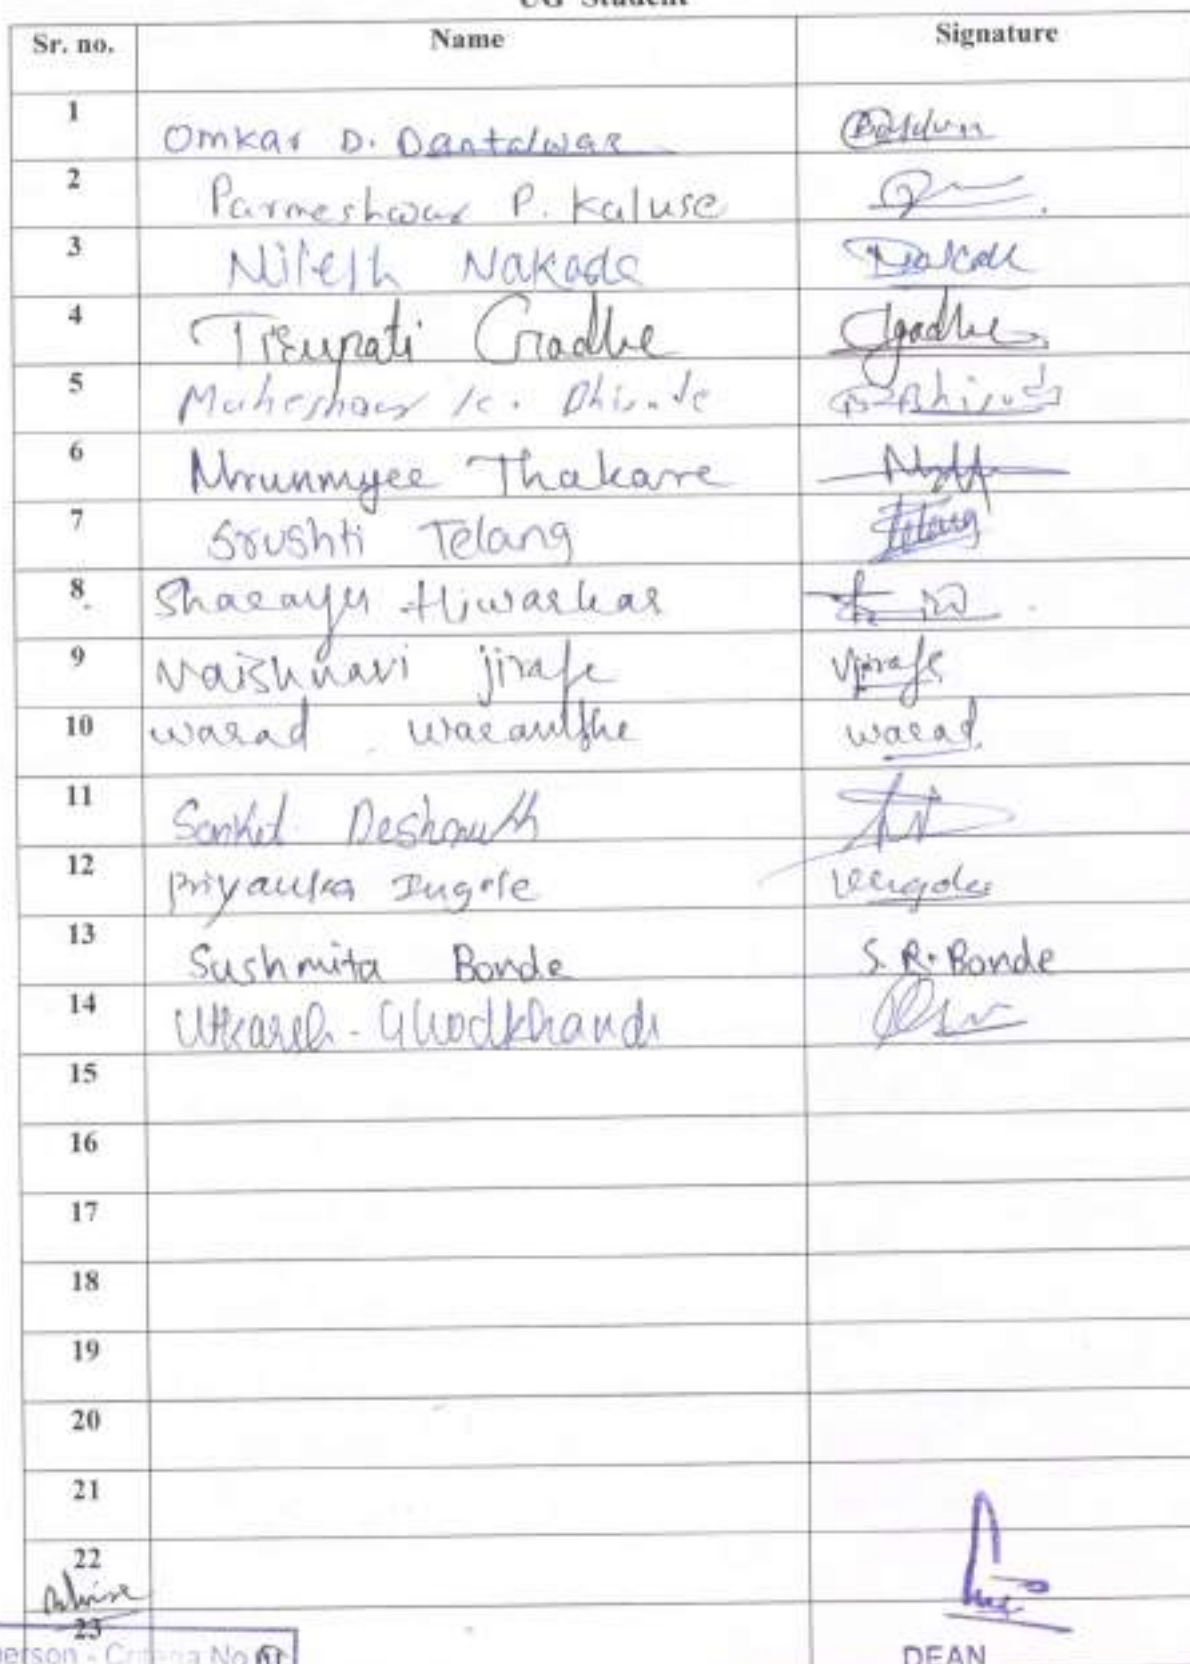 UG Student
Sr. no. Name Signature
1 Omkar D. Dantalwar
2 Parmeshwar P. Kaluse
3 Nilesh Nakade Nakade
4 Tirupati Gadhe Gadhe
5 Maheshwar K. Bhisade
6 Mrunmyee Thakare
7 Srushti Telang Telang
8 Sharayu Hiwarkar
9 Vaishnavi jirafe Vjirafe
10 warad waranthe warad
11 Sanket Deshmukh
12 Priyanka Ingole
13 Sushmita Bonde S. R. Bonde
14 Utkarsh - Ghodkhande
15
16
17
18
19
20
21
22
23
erson - Criteria No
DEAN